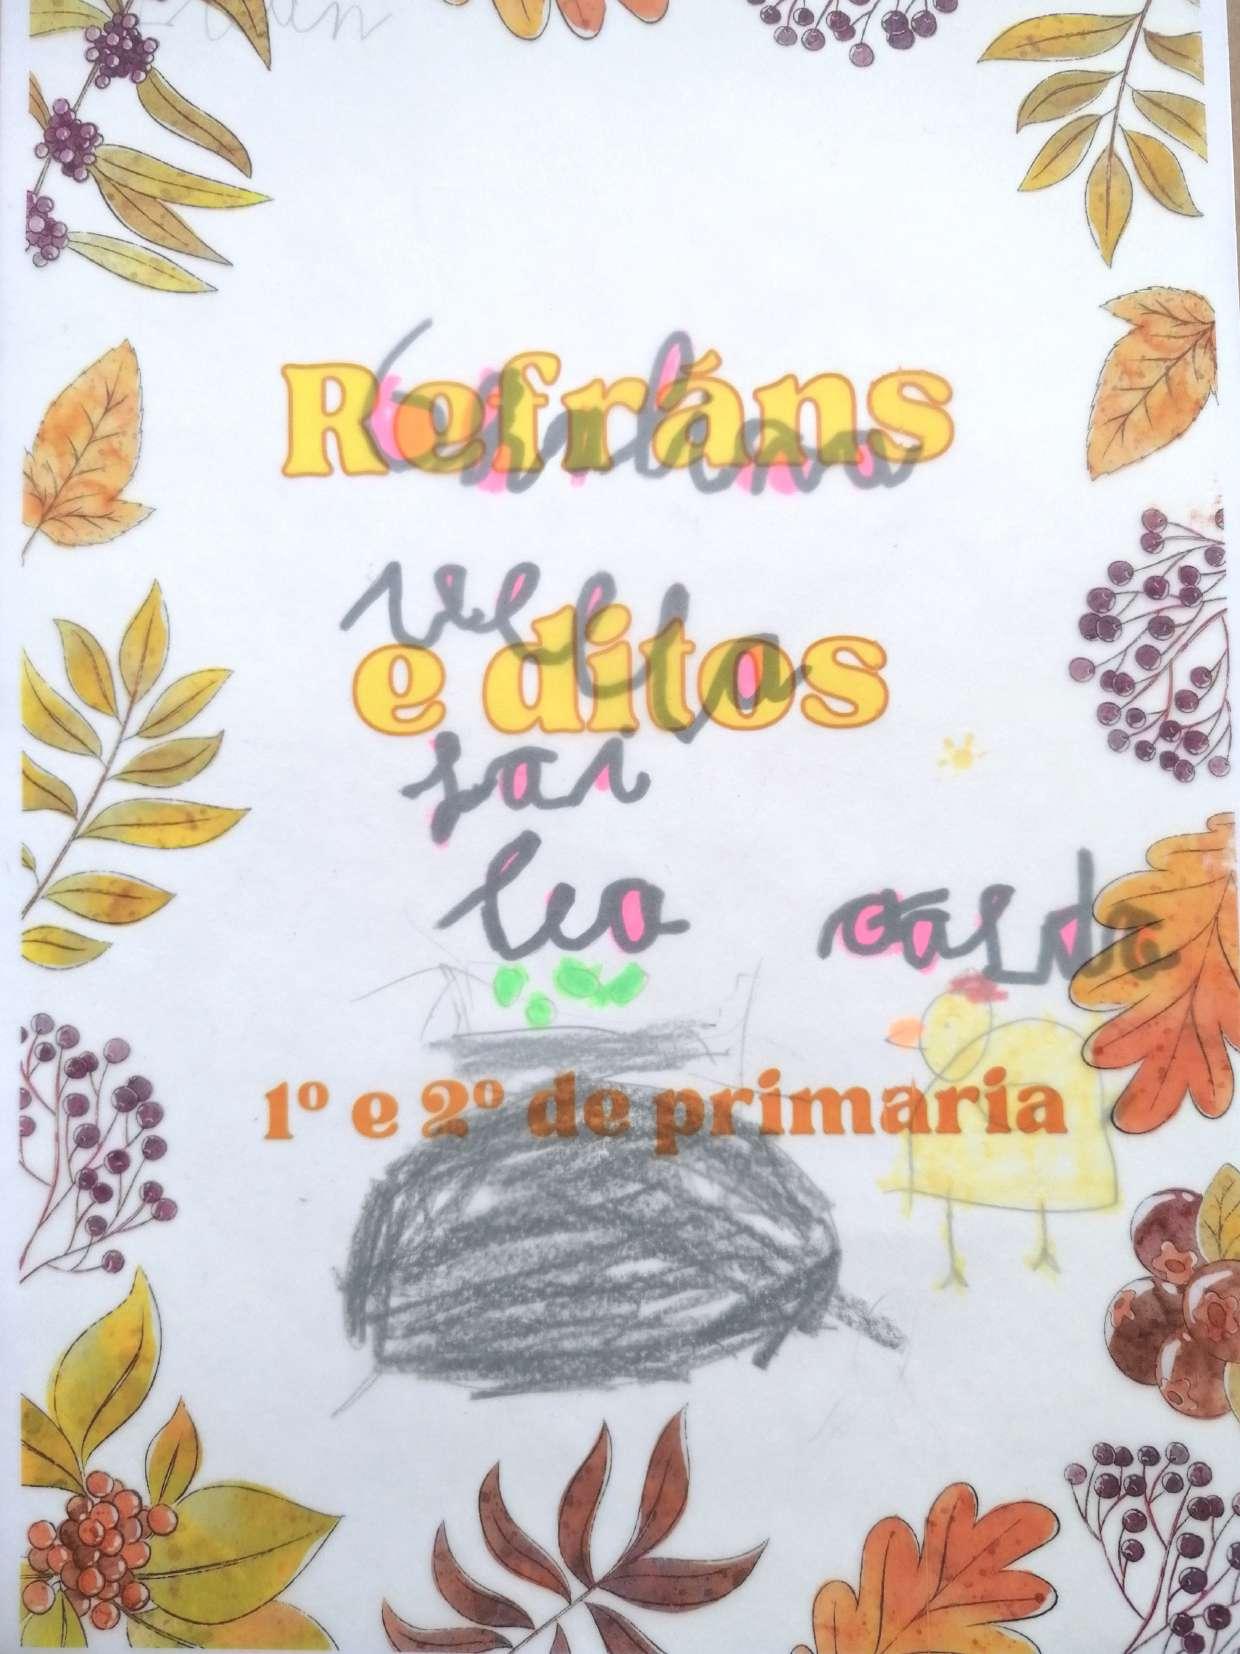 Refráns
Galiña
vella
e ditos
fai
bo caldo
1º e 2º de primaria